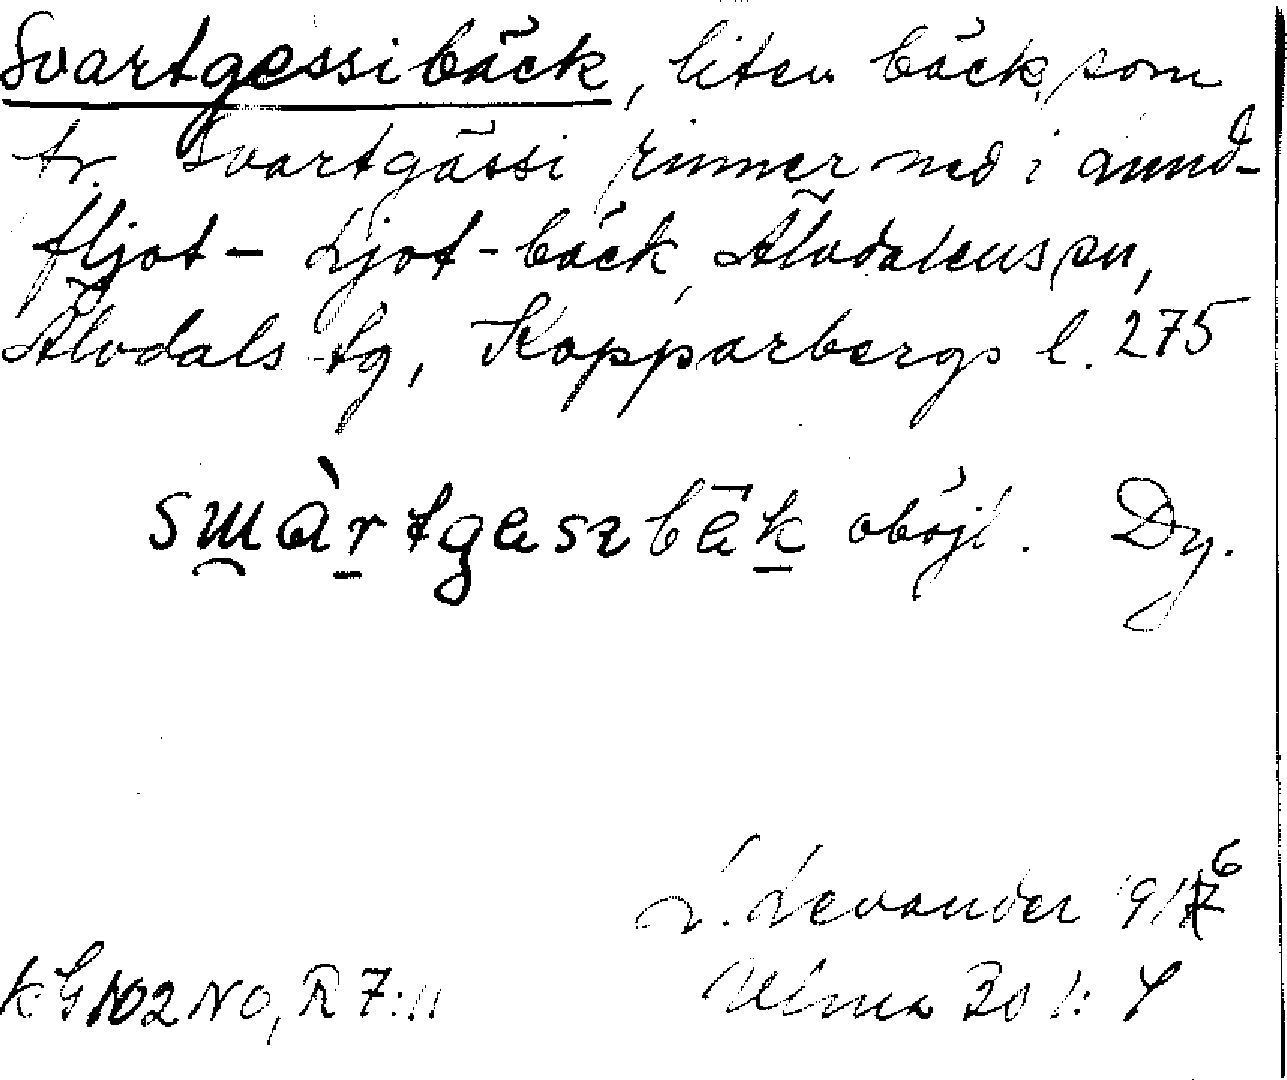 Svartgessibäck, liten bäck som
fr. Svartgässi rinner ned i
fljot- Ljot-bäck, Älvdalens sn,
Älvdals tg, Kopparbergs l. 275
oböjl. Dy.
L. Levander 1916
KG 102 NO, R 7:11
Ulma 30 1: 4